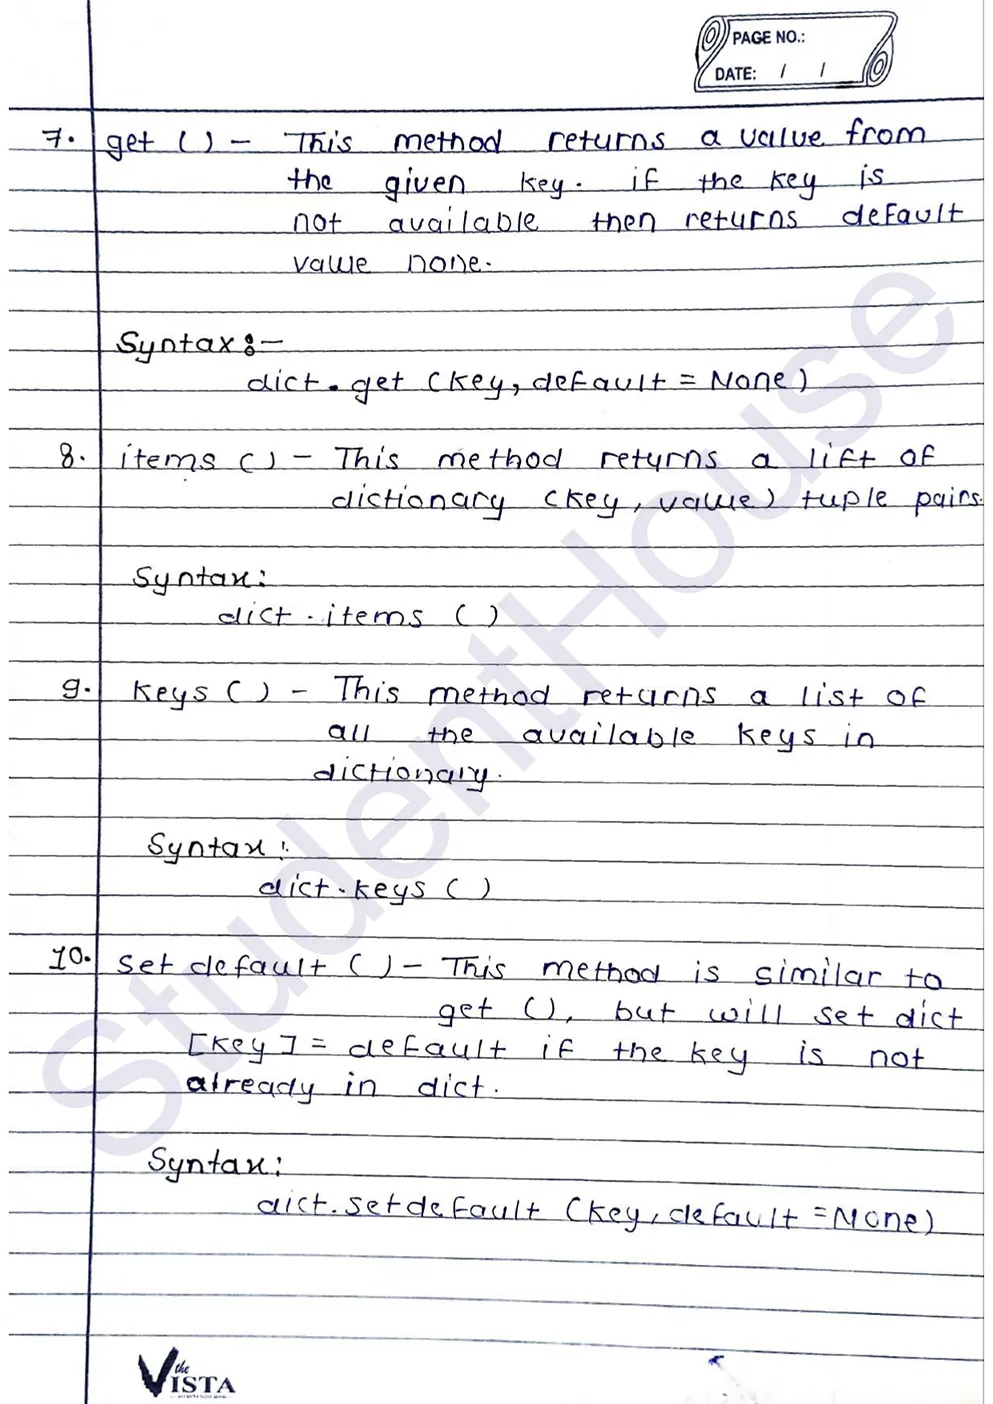 PAGE NO.:
DATE: / /
7. get ( ) - This method returns a value from
the given key. if the key is
not available then returns default
value none.
Syntax :-
dict.get (key, default = None)
8. items ( ) - This method returns a lift of
dictionary (key, value) tuple pairs.
Syntax:
dict.items ( )
9. keys ( ) - This method returns a list of
all the available keys in
dictionary.
Syntax:
dict.keys ( )
10. set default ( ) - This method is similar to
get ( ), but will set dict
[key] = default if the key is not
already in dict.
Syntax:
dict.setdefault (key, default = None)
StudentHouse
the
VISTA